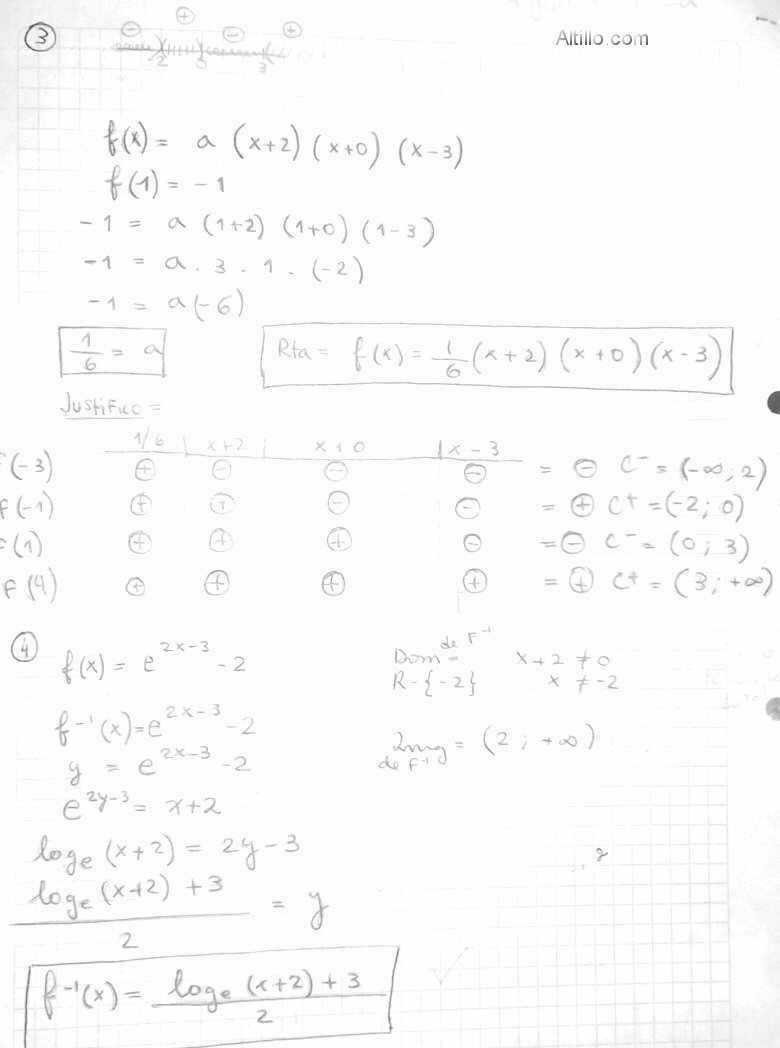 ③
⊖ ⊕ ⊖ ⊕
-2 0 3
Altillo.com
f(x) = a (x+2) (x+0) (x-3)
f(1) = -1
-1 = a (1+2) (1+0) (1-3)
-1 = a . 3 . 1 . (-2)
-1 = a(-6)
1/6 = a
Rta = f(x) = 1/6 (x+2) (x+0) (x-3)
Justifico =
1/6 | x+2 | x+0 | x-3
f(-3) ⊕ ⊖ ⊖ ⊖ = ⊖ C⁻ = (-∞; 2)
f(-1) ⊕ ⊕ ⊖ ⊖ = ⊕ C⁺ = (-2; 0)
f(1) ⊕ ⊕ ⊕ ⊖ = ⊖ C⁻ = (0; 3)
f(4) ⊕ ⊕ ⊕ ⊕ = ⊕ C⁺ = (3; +∞)
④
f(x) = e^(2x-3) - 2
f⁻¹(x) = e^(2x-3) - 2
y = e^(2x-3) - 2
e^(2y-3) = x+2
logₑ (x+2) = 2y-3
(logₑ (x+2) + 3)/2 = y
f⁻¹(x) = (logₑ (x+2) + 3)/2
Dom de F⁻¹ = x+2 ≠ 0
R-{-2} x ≠ -2
Img = (2; +∞)
de F⁻¹